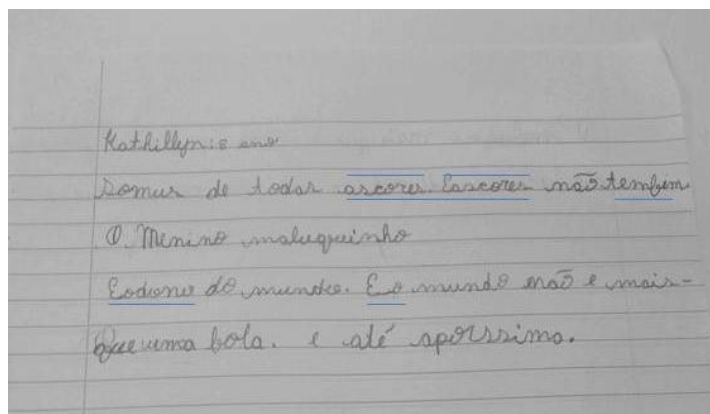 Kathillyn: 8 ano
Somus de todas ascores. Eascores não tembem
O. Menino maluquinho
Eodono do mundo. E o mundo não e mais-
que uma bola. e até aporssimo.